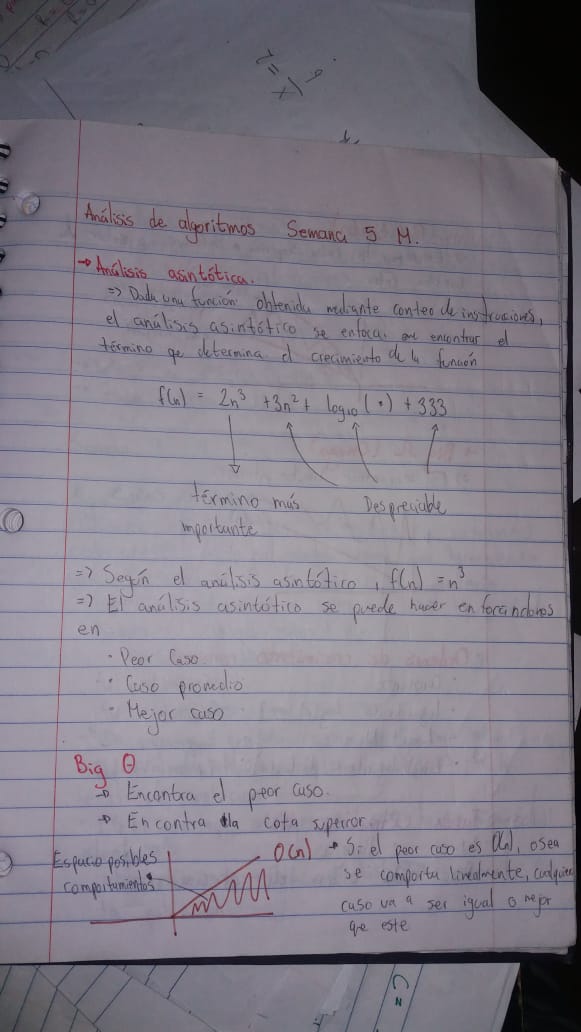 Análisis de algoritmos Semana 5 M.
→ Análisis asintótica.
=> Dada una función obtenida mediante conteo de instrucciones,
el análisis asintótico se enfoca en encontrar el
término qe determina el crecimiento de la función
f(n) = 2n³ + 3n² + log₁₀(•) + 333
término más
importante
Despreciable
=> Según el análisis asintótico, f(n) = n³
=> El análisis asintótico se puede hacer enforcándonos
en
• Peor Caso
• Caso promedio
• Mejor caso
Big Θ
→ Encontra el peor caso.
→ Encontra la cota superior
Espacio posibles
comportamientos
O(n)
→ Si el peor caso es O(n), osea
se comporta linealmente, cualquier
caso va a ser igual o mejor
que este
C =